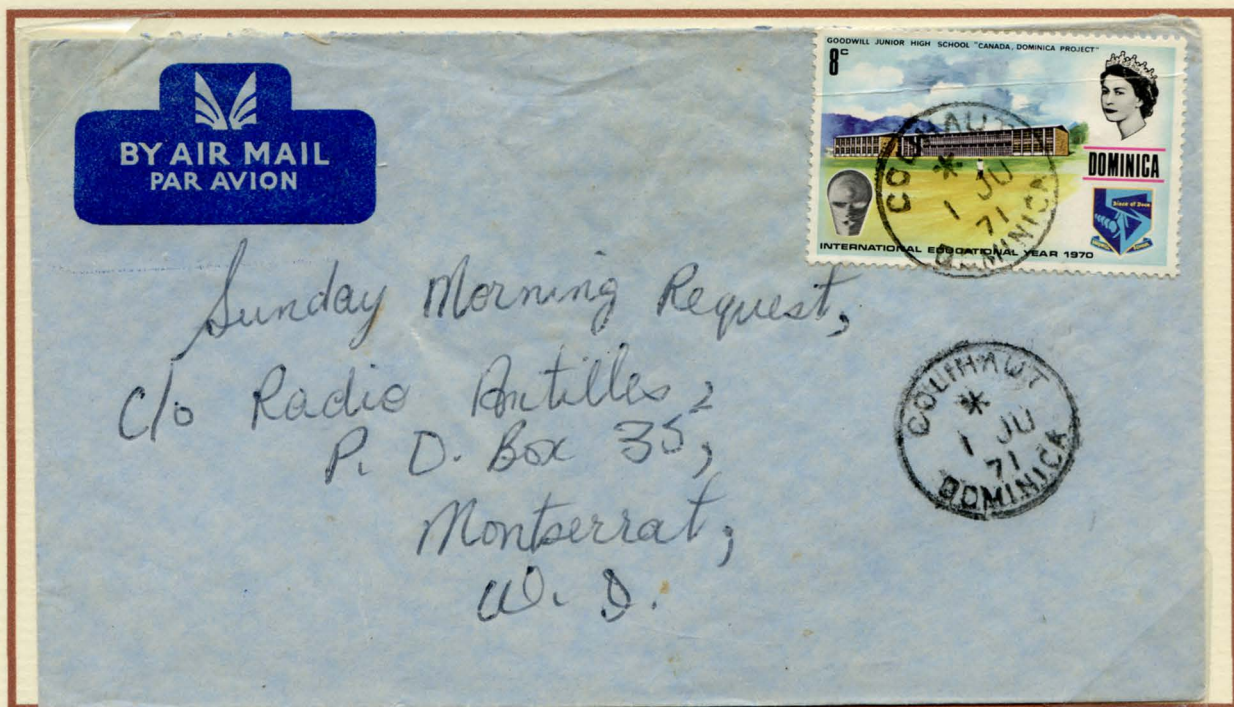 BY AIR MAIL
PAR AVION
GOODWILL JUNIOR HIGH SCHOOL "CANADA, DOMINICA PROJECT"
8c
DOMINICA
INTERNATIONAL EDUCATIONAL YEAR 1970
COLIHAUT
1 JU
71
DOMINICA
Sunday Morning Request,
c/o Radio Antilles,
P. O. Box 35,
Montserrat,
W. I.
COLIHAUT
1 JU
71
DOMINICA